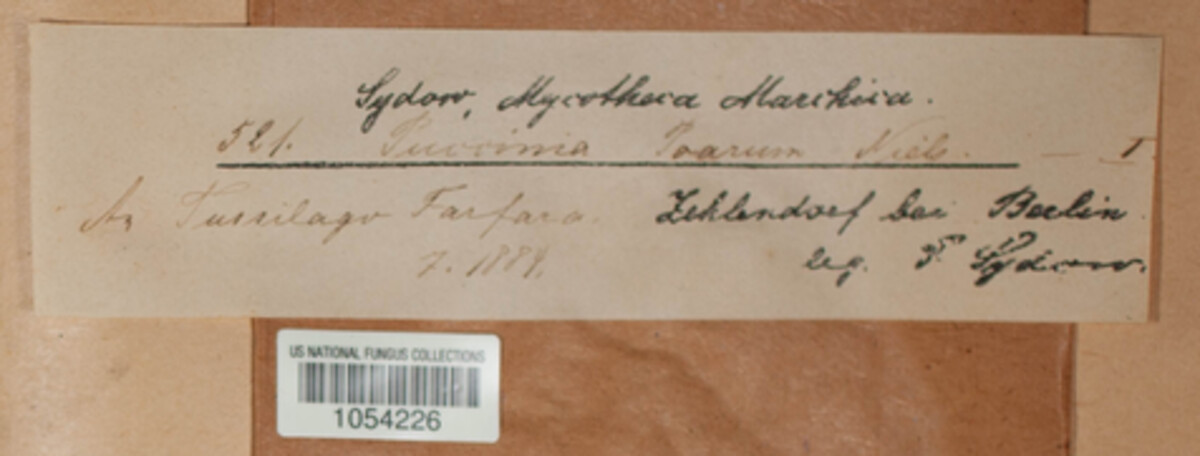 Sydow, Mycotheca Marchica.
521. Puccinia Poarum Niels. — I
An Tussilago Farfara. Zehlendorf bei Berlin.
7. 1884. leg. P. Sydow.
US NATIONAL FUNGUS COLLECTIONS
1054226